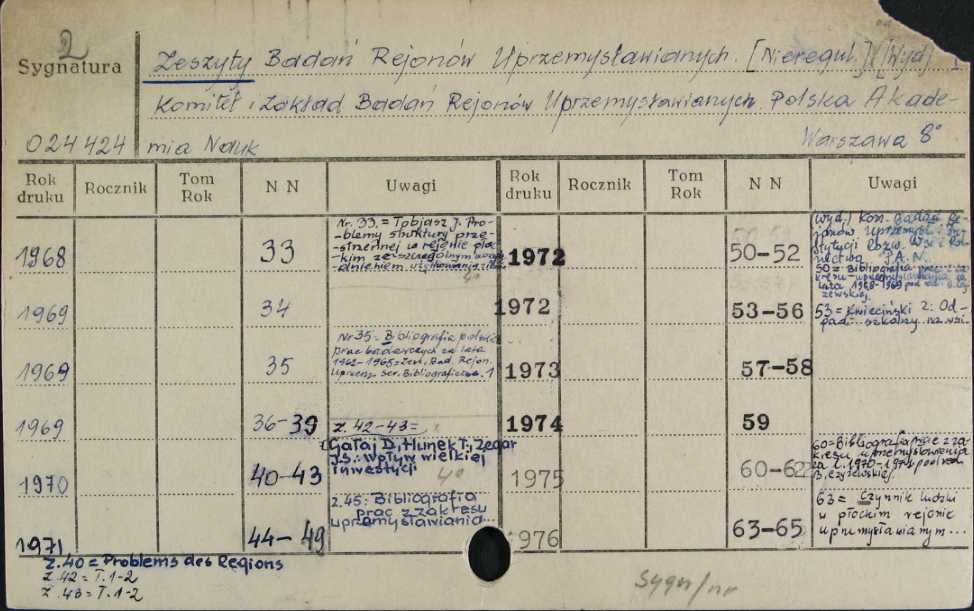 2
Sygnatura
Zeszyty Badań Rejonów Uprzemysławianych. [Nieregul.] [Wyd.]
Komitet i Zakład Badań Rejonów Uprzemysławianych. Polska Akade-
024424 mia Nauk Warszawa 8°
Rok druku Rocznik Tom Rok N N Uwagi Rok druku Rocznik Tom Rok N N Uwagi
1968 33 Nr. 33. = Tobjasz J. Pro-
-blemy struktury prze-
-strzennej w rejonie płoc-
-kim ze szczególnym
1972 50-52 (wyd.) Kom. Badań Re-
jonów Uprzemysł. i
Rozw. Wsi i Rol-
nictwa P.A.N.
50 = Bibliografia prac z za-
kresu uprzemysławiania za
lata 1968-1969 pod
1969 34
1972 53-56 53 = Kwieciński Z: Od-
pad szkolny na wsi.
1969 35 Nr 35. Bibliografia polskich
prac badawczych za lata
1962-1966 = Zesz. Bad. Rejon.
Uprzem. Ser. Bibliograficzna. 1
1973 57-58
1969 36-39 z. 42-43 =
1974 59
1970 40-43 Gałaj D., Hunek T., Zegar
J.S.: Wpływ wielkiej
inwestycji
1975 60-62 60 = Bibliografia prac z za-
kresu uprzemysłowienia
za l. 1970-1971 pod red.
1971 44-49 z. 45: Bibliografia
prac z zakresu
uprzemysławiania...
1976 63-65 63 = Czynnik ludzki
w płockim rejonie
uprzemysławianym...
Z. 40 = Problems des Regions
Z. 42 = T. 1-2
Z. 43 = T. 1-2
Sygn/nr